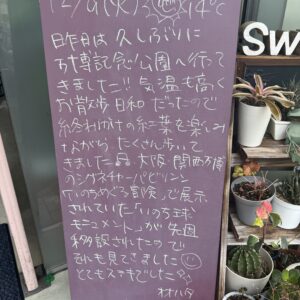 12/9(火) 14℃
昨日は久しぶりに
万博記念公園へ行って
きました!! 気温も高く
お散歩日和だったので
終わりかけの紅葉を楽しみ
ながらたくさん歩いて
きました
大阪・関西万博
のシグネチャーパビリオン
「いのちめぐる冒険」で展示
されていた「いのち球
モニュメント」が先週
移設されたので
それも見てきました
とてもステキでした?
Sw